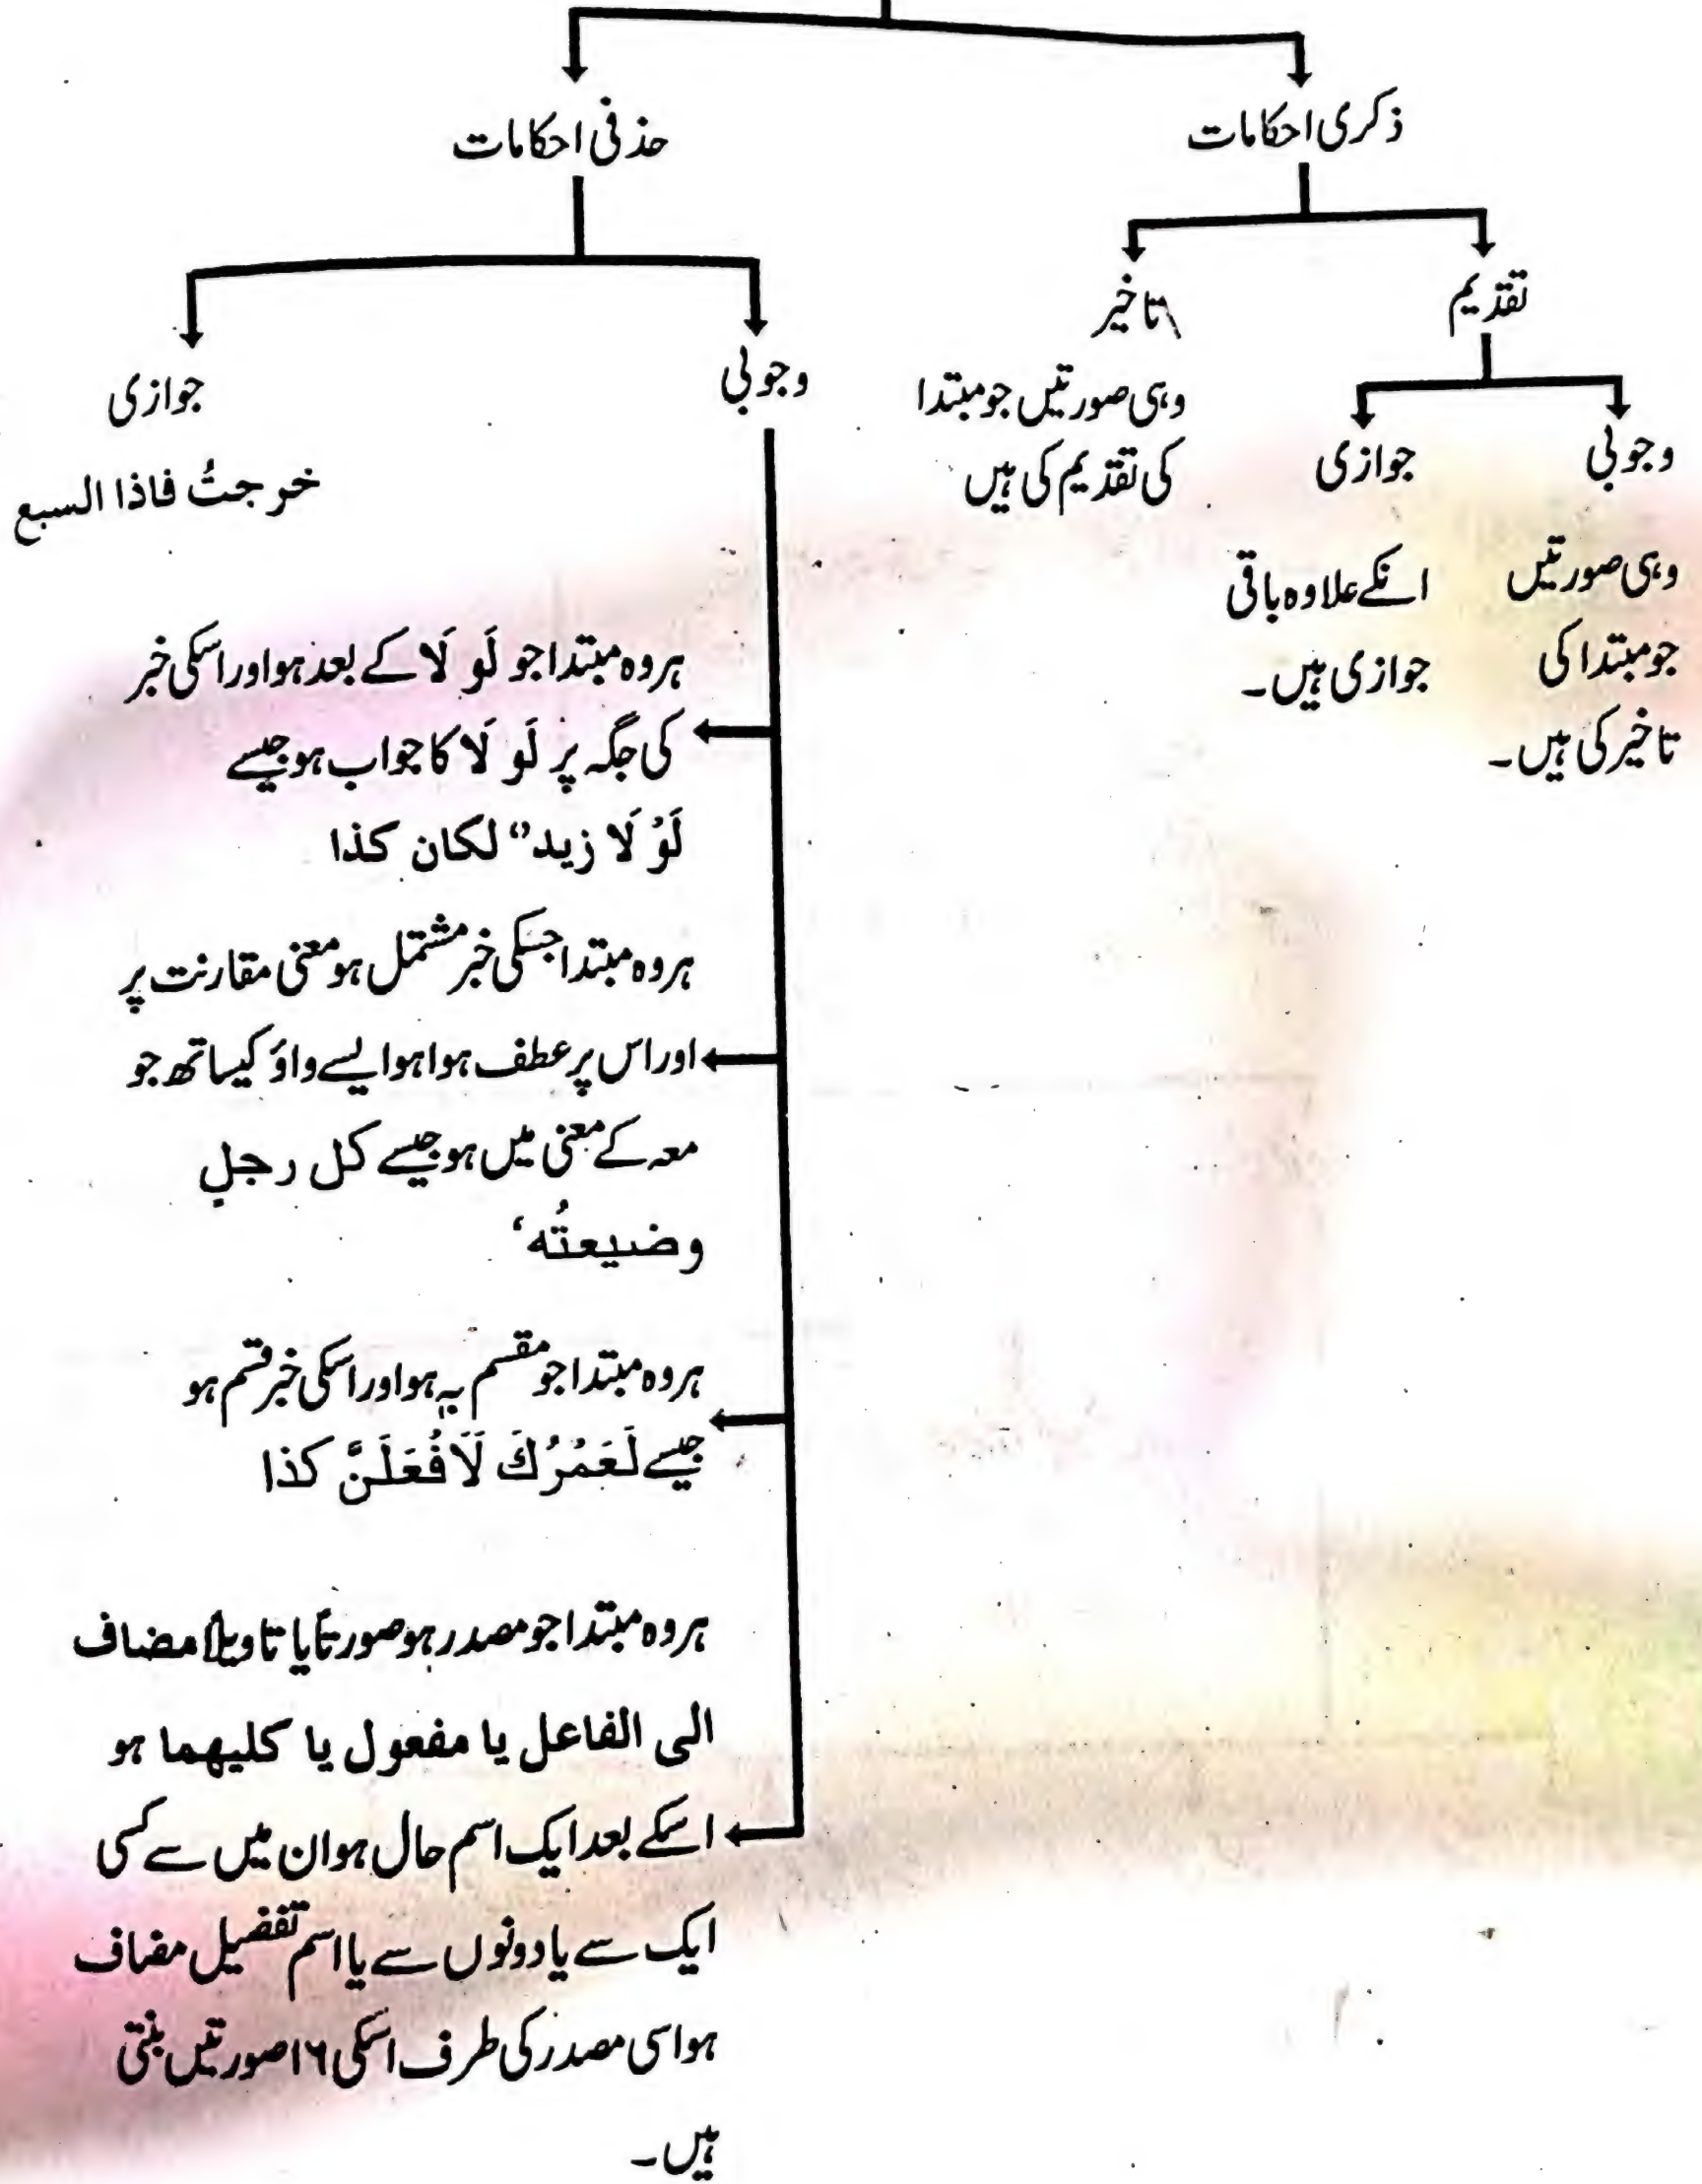 ذکری احکامات
حذفی احکامات
تقدیم
تاخیر
وجوبی
جوازی
وہی صورتیں
جو مبتدا کی
تاخیر کی ہیں۔
انکے علاوہ باقی
جوازی ہیں۔
وہی صورتیں جو مبتدا
کی تقدیم کی ہیں
وجوبی
جوازی
خرجتُ فاذا السبع
ہر وہ مبتدا جو لَو لَا کے بعد ہو اور اسکی خبر
کی جگہ پر لَو لَا کا جواب ہو جیسے
لَوْ لَا زید'' لکان کذا
ہر وہ مبتدا جسکی خبر مشتمل ہو معنی مقارنت پر
اور اس پر عطف ہوا ہو ایسے واؤ کیساتھ جو
معہ کے معنی میں ہو جیسے کل رجلٍ
وضیعتُه‘
ہر وہ مبتدا جو مقسم بہٖ ہو اور اسکی خبر قسم ہو
جیسے لَعَمْرُكَ لَافُعَلَنَّ کذا
ہر وہ مبتدا جو مصدر ہو صورتاً یا تاویلاً مضاف
الی الفاعل یا مفعول یا کلیهما ہو
اسکے بعد ایک اسم حال ہو ان میں سے کسی
ایک سے یا دونوں سے یا اسم تفضیل مضاف
ہو اسی مصدر کی طرف اسکی ۱۶ صورتیں بنتی
ہیں۔